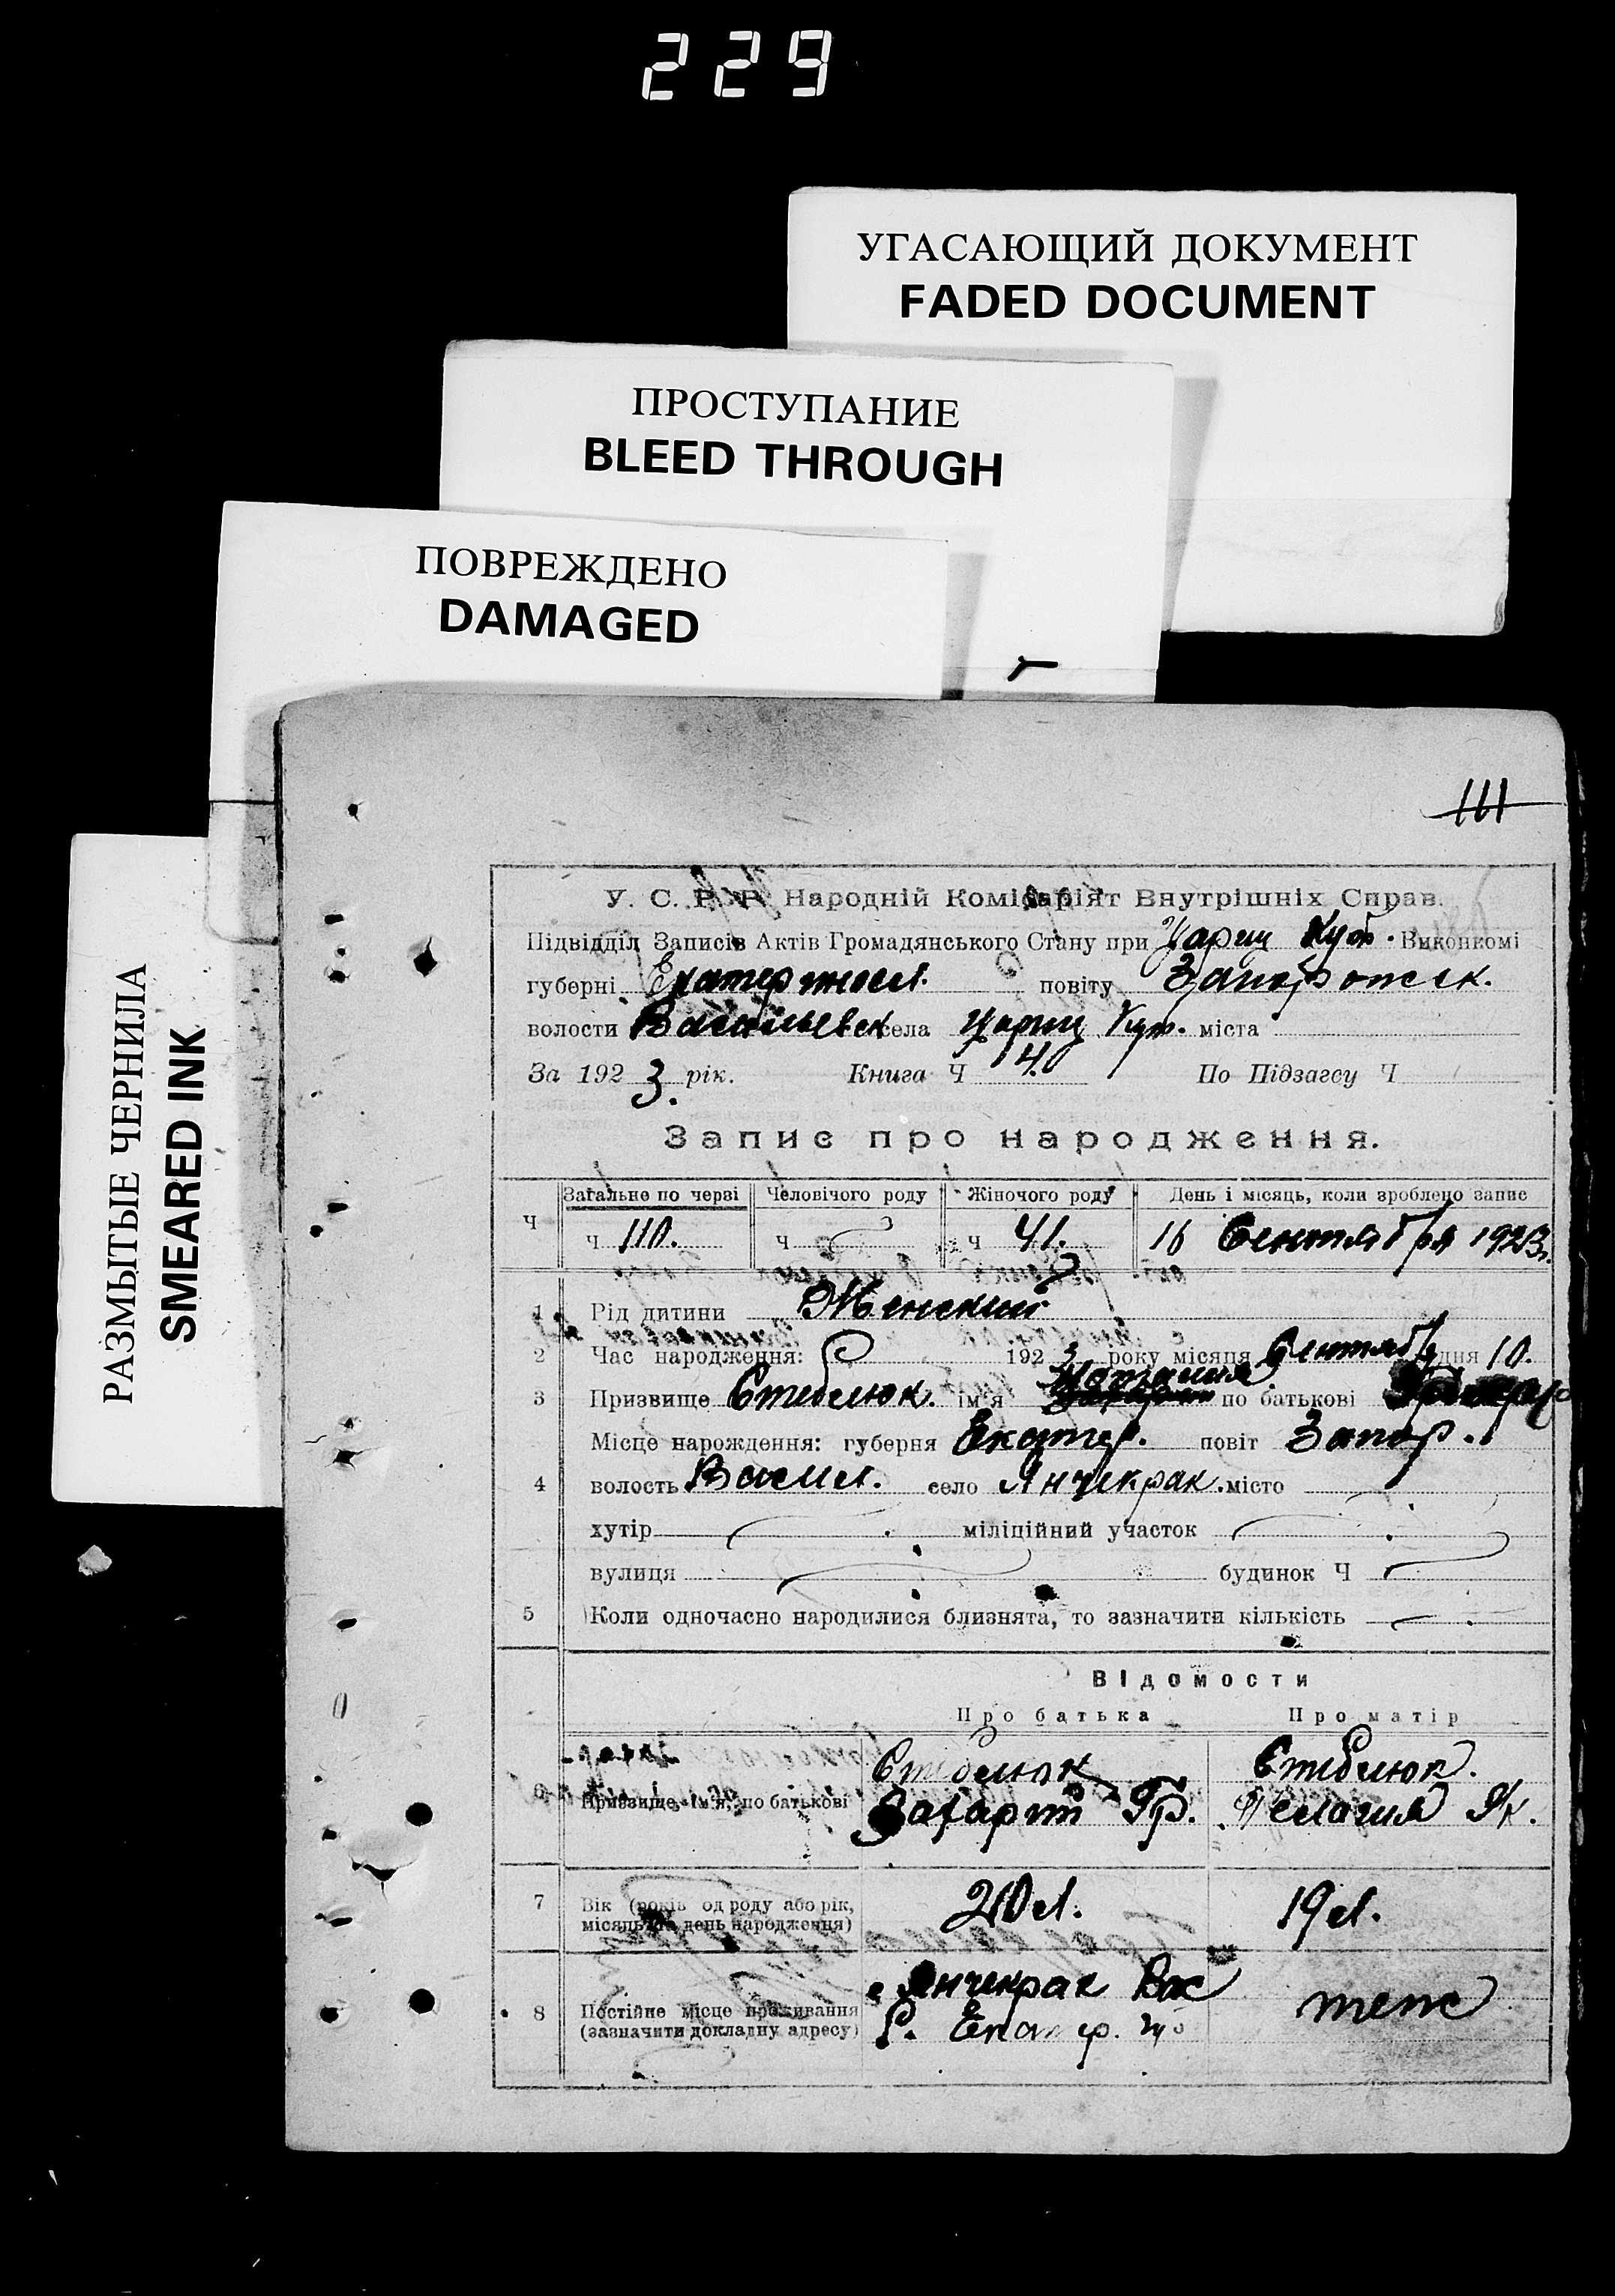 229
УГАСАЮЩИЙ ДОКУМЕНТ
FADED DOCUMENT
ПРОСТУПАНИЕ
BLEED THROUGH
ПОВРЕЖДЕНО
DAMAGED
РАЗМЫТЫЕ ЧЕРНИЛА
SMEARED INK
111
У. С. Р. Р. Народній Комісаріят Внутрішніх Справ.
Підвідділ Записів Актів Громадянського Стану при Цариц Кут. Виконкомі
губерні Екатеринosл. повіту Запорожск.
волости Васильевск села Цариц Кут. міста
За 1923 рік. Книга Ч 4. По Підзагсу Ч
Запис про народження.
Загальне по черзі Человічого роду Жіночого роду День і місяць, коли зроблено запис
Ч ч 110. ч ч 41. 16 Сентября 1923г.
1 Рід дитини Женский
2 Час народження: 1923 року місяця Сентяб дня 10.
3 Призвище Стебелюк. ім'я Наталия по батькові
Місце народження: губерня Екатер. повіт Запор.
4 волость Васил. село Янчекрак. місто
хутір міліційний участок
вулиця будинок Ч
5 Коли одночасно народилися близнята, то зазначити кількість
Відомости
Про батька Про матір
Стебелюк Стебелюк.
6 Призвище, ім'я, по батькові Захарий Гр. Пелагия Як.
7 Вік (років од роду або рік, місяць та день народження) 20 л. 19 л.
8 Постійне місце проживання (зазначити докладну адресу) с Янчекрак Вас тоже
Р. Екатер. губ